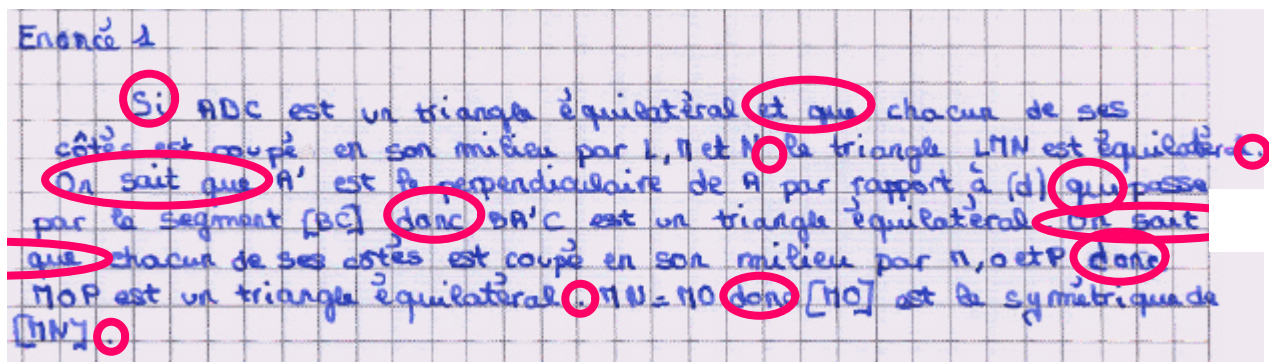 Enoncé 1
Si ADC est un triangle équilatéral et que chacun de ses
côtés est coupé en son milieu par L, M et N, le triangle LMN est équilatéral.
On sait que A' est le perpendiculaire de A par rapport à (d) qui passe
par le segment [BC] donc BA'C est un triangle équilatéral. On sait
que chacun de ses côtés est coupé en son milieu par n, o et P donc
MOP est un triangle équilatéral. MN = MO donc [MO] est le symétrique de
[MN].